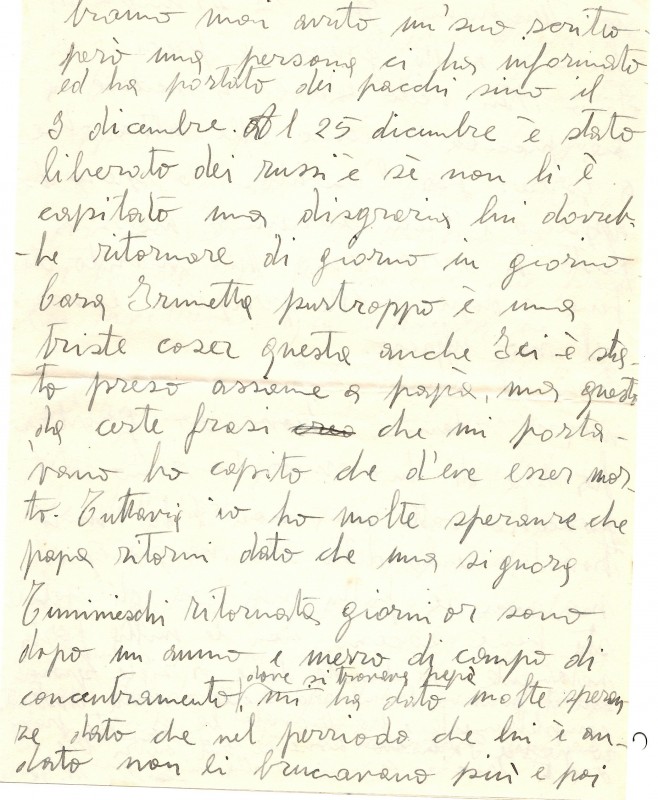 biamo mai avuto un'suo scritto
però una persona ci ha informato
ed ha portato dei pacchi sino il
3 dicembre. Al 25 dicembre è stato
liberato dei russi è sè non li è
capitato una disgrazia lui dovreb-
-be ritornare di giorno in giorno
Cara Brunetta purtroppo è una
triste coser questa anche Lei è sta-
to preso assieme a papà, ma questi
da certe frasi creo che mi porta-
vano ho capito che d'eve esser mor-
to. Tuttavia io ho molte speranze che
papa ritorni dato che una signora
ritornata giorni or sono
dopo un anno e mezzo di campo di
dove si trovava papà
concentramento, mi ha dato molte speran
ze dato che nel perriodo che lui è an-
dato non li bruciavano più e poi